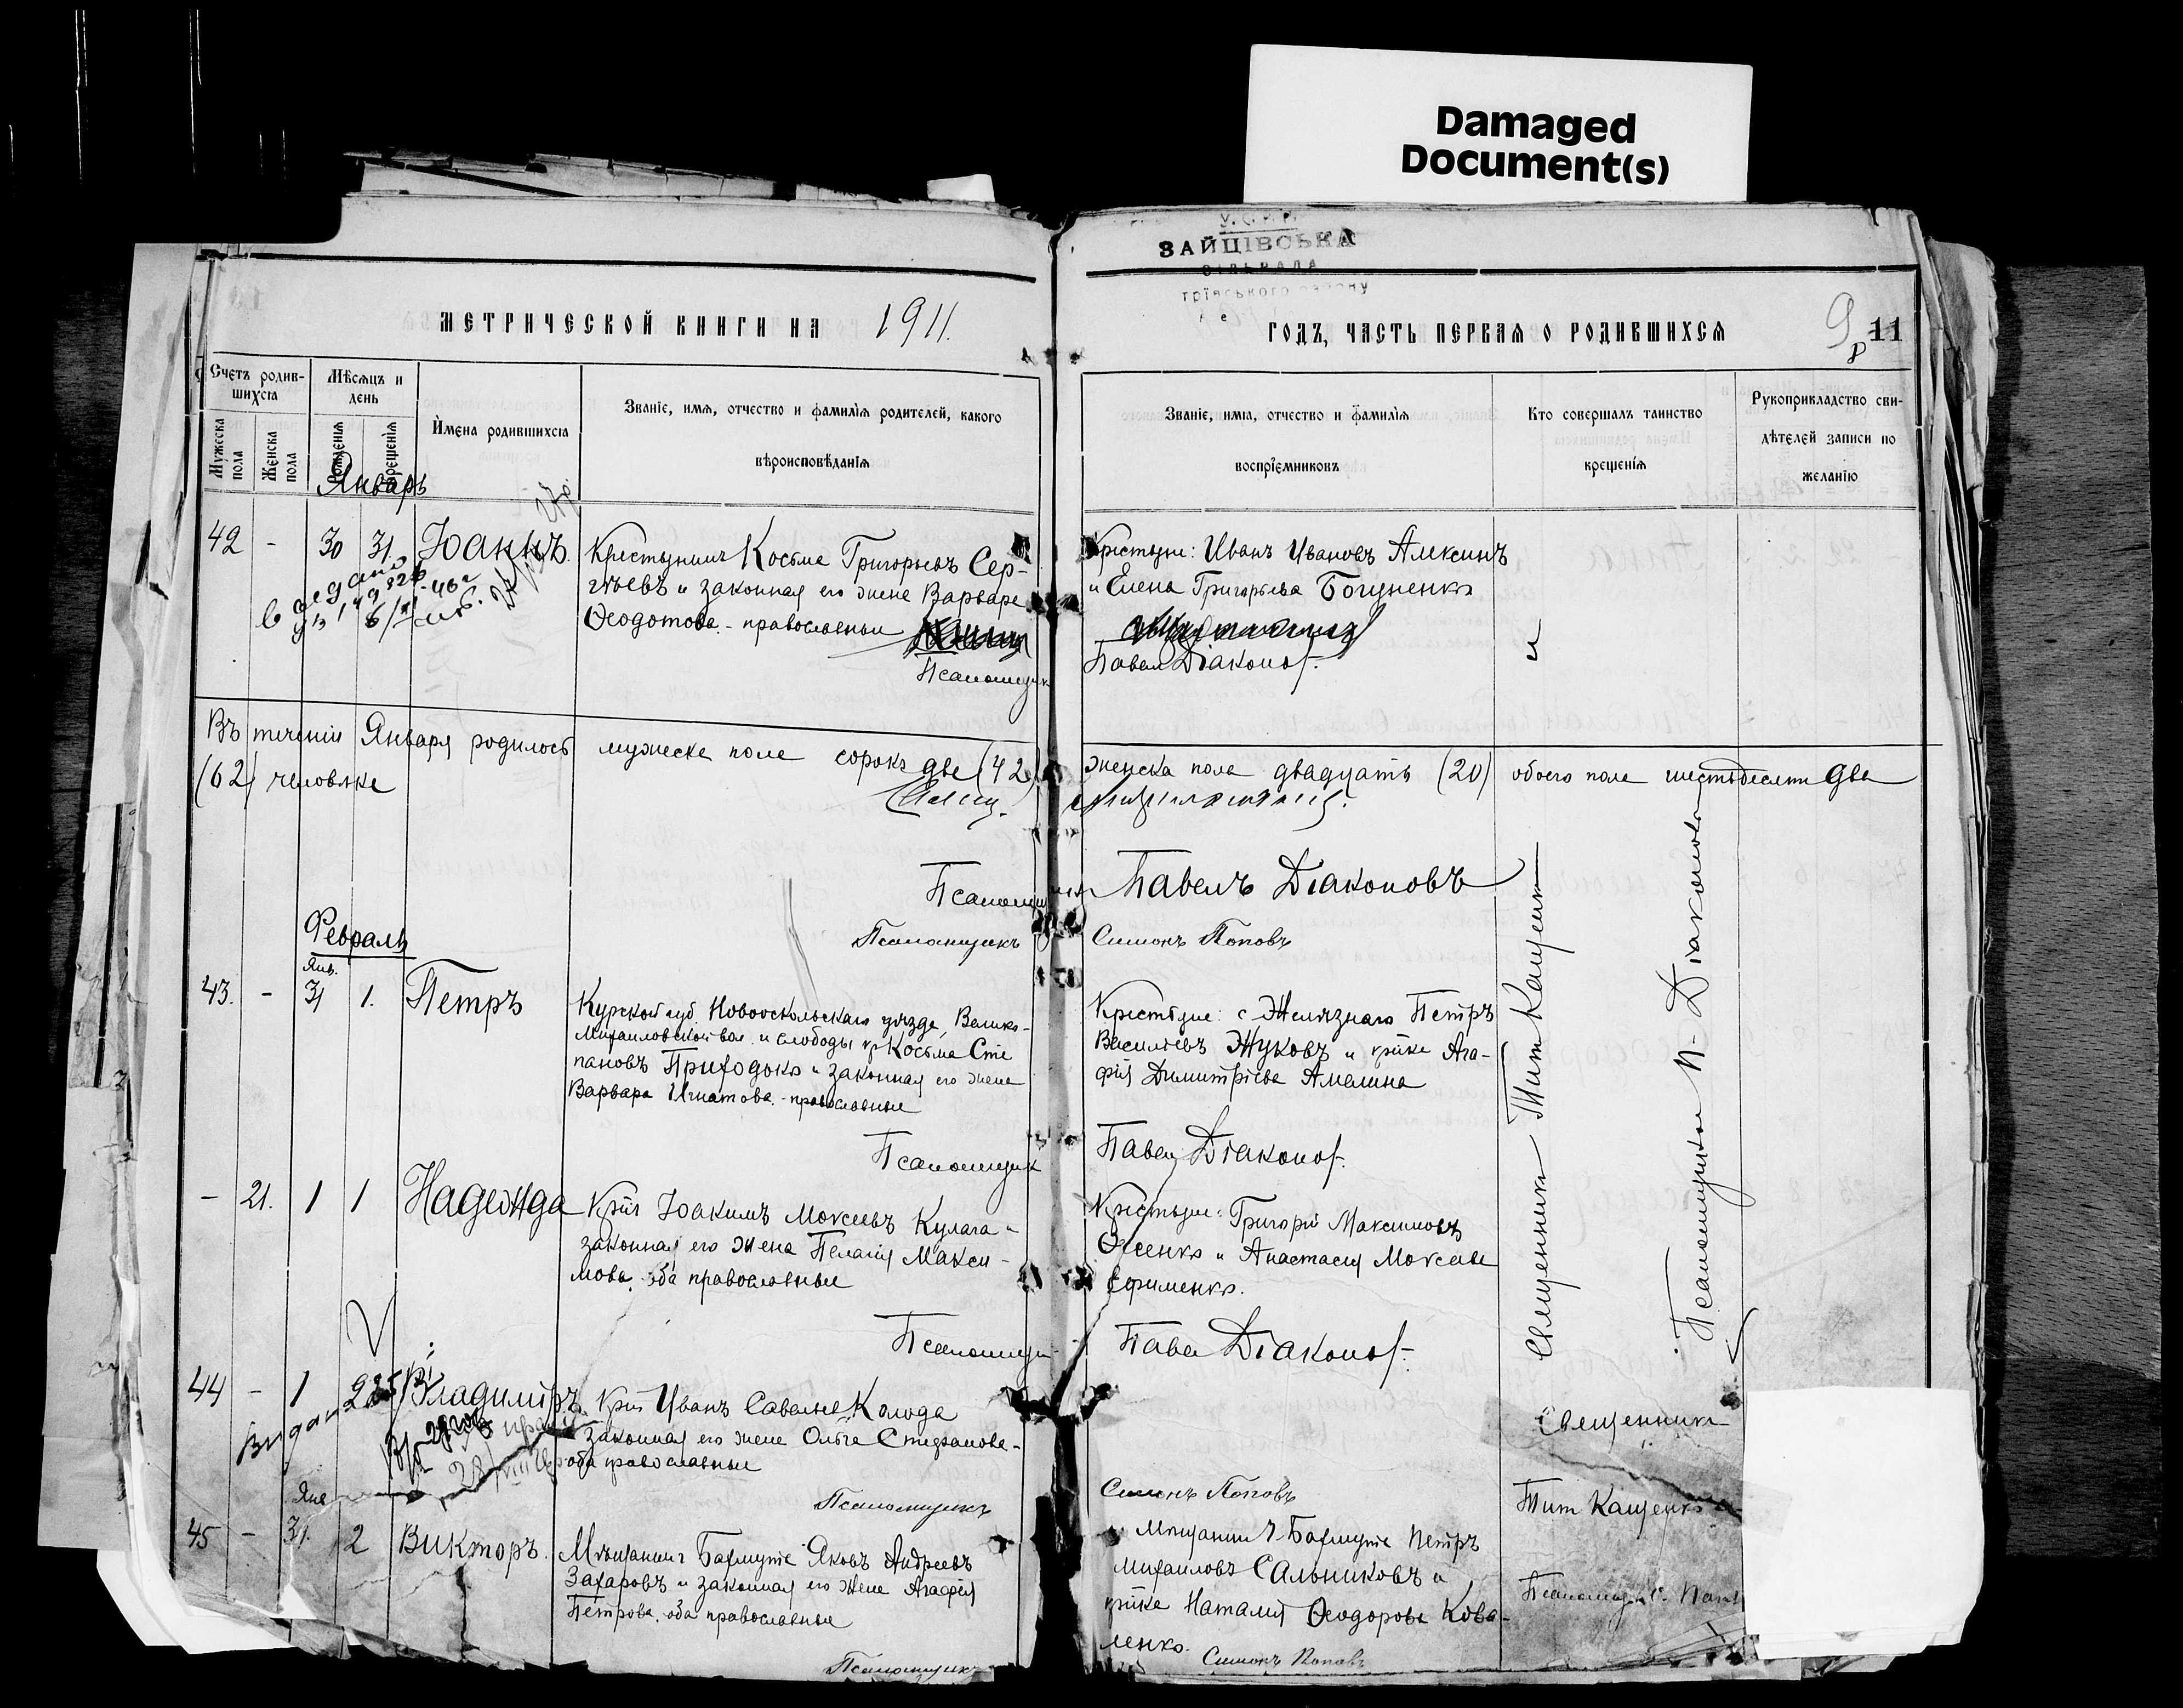 Damaged
Document(s)
У.С.Р.Р.
ЗАЙЦІВСЬКА
СІЛЬРАДА
району
МЕТРИЧЕСКОЙ КНИГИ НА 1911.
ГОДЪ, ЧАСТЬ ПЕРВАЯ О РОДИВШИХСЯ
9
11
Счетъ родив-
шихся
Мужеска пола
Женска пола
Мѣсяцъ и
день
Рожденія
Крещенія
Имена родившихся
Званіе, имя, отчество и фамилія родителей, какого
вѣроисповѣданія
Званіе, имя, отчество и фамилія
воспріемниковъ
Кто совершалъ таинство
крещенія
Рукоприкладство сви-
дѣтелей записи по
желанію
Январь
42 - 30 31. Іоаннъ.
Крестьянинъ Косьма Григорьевъ Сер-
гѣевъ и законная его жена Варвара
Ѳеодотова - православные
Псаломщикъ
Крестьяне: Иванъ Ивановъ Алексинъ
и Елена Григорьева Богуненко
Павелъ Діаконов.
Въ теченіи Января родилось мужеска пола сорокъ два (42) женска пола двадцать (20) обоего пола шестьдесятъ два
(62) человѣка
Псаломщикъ Павелъ Діаконовъ
Псаломщикъ Симонъ Поповъ
Февраль
Янв.
43. - 31 1. Петръ
Курской губ. Новооскольскаго уѣзда, Велико-
Михайловской вол. и слободы кр. Косьма Сте
пановъ Приходько и законная его жена
Варвара Игнатова - православные
Псаломщикъ
Крестьяне: с. Желѣзнаго Петръ
Васильевъ Жуковъ и кр-ка Ага-
фія Димитріева Амелина
Павелъ Діаконов.
- 21. 1 1 Надежда
Кр-нъ Іоакимъ Моисеевъ Кулага и
законная его жена Пелагія Макси-
мова, оба православные
Псаломщикъ
Крестьяне: Григорій Максимовъ
и Анастасія Моисеева
Ефименко.
Павел Діаконов.
Священникъ Титъ Кащенко
Псаломщикъ П. Діаконовъ
44 - 1 2 Владиміръ
Кр-нъ Иванъ Савельевъ Колода
законная его жена Ольга Стефанова -
оба православные
Псаломщикъ
Симонъ Поповъ
Священникъ
Титъ Кащенко
Янв
45 - 31. 2 Викторъ.
Мѣщанинъ г. Бахмута Яковъ Андреевъ
Захаровъ и законная его жена Агафія
Петрова, оба православные
Псаломщикъ
Мѣщанинъ г. Бахмута Петръ
Михаиловъ Сальниковъ и
кр-ка Наталія Ѳеодорова Кова-
ленко.
Симонъ Поповъ
Псаломщикъ С. Попов